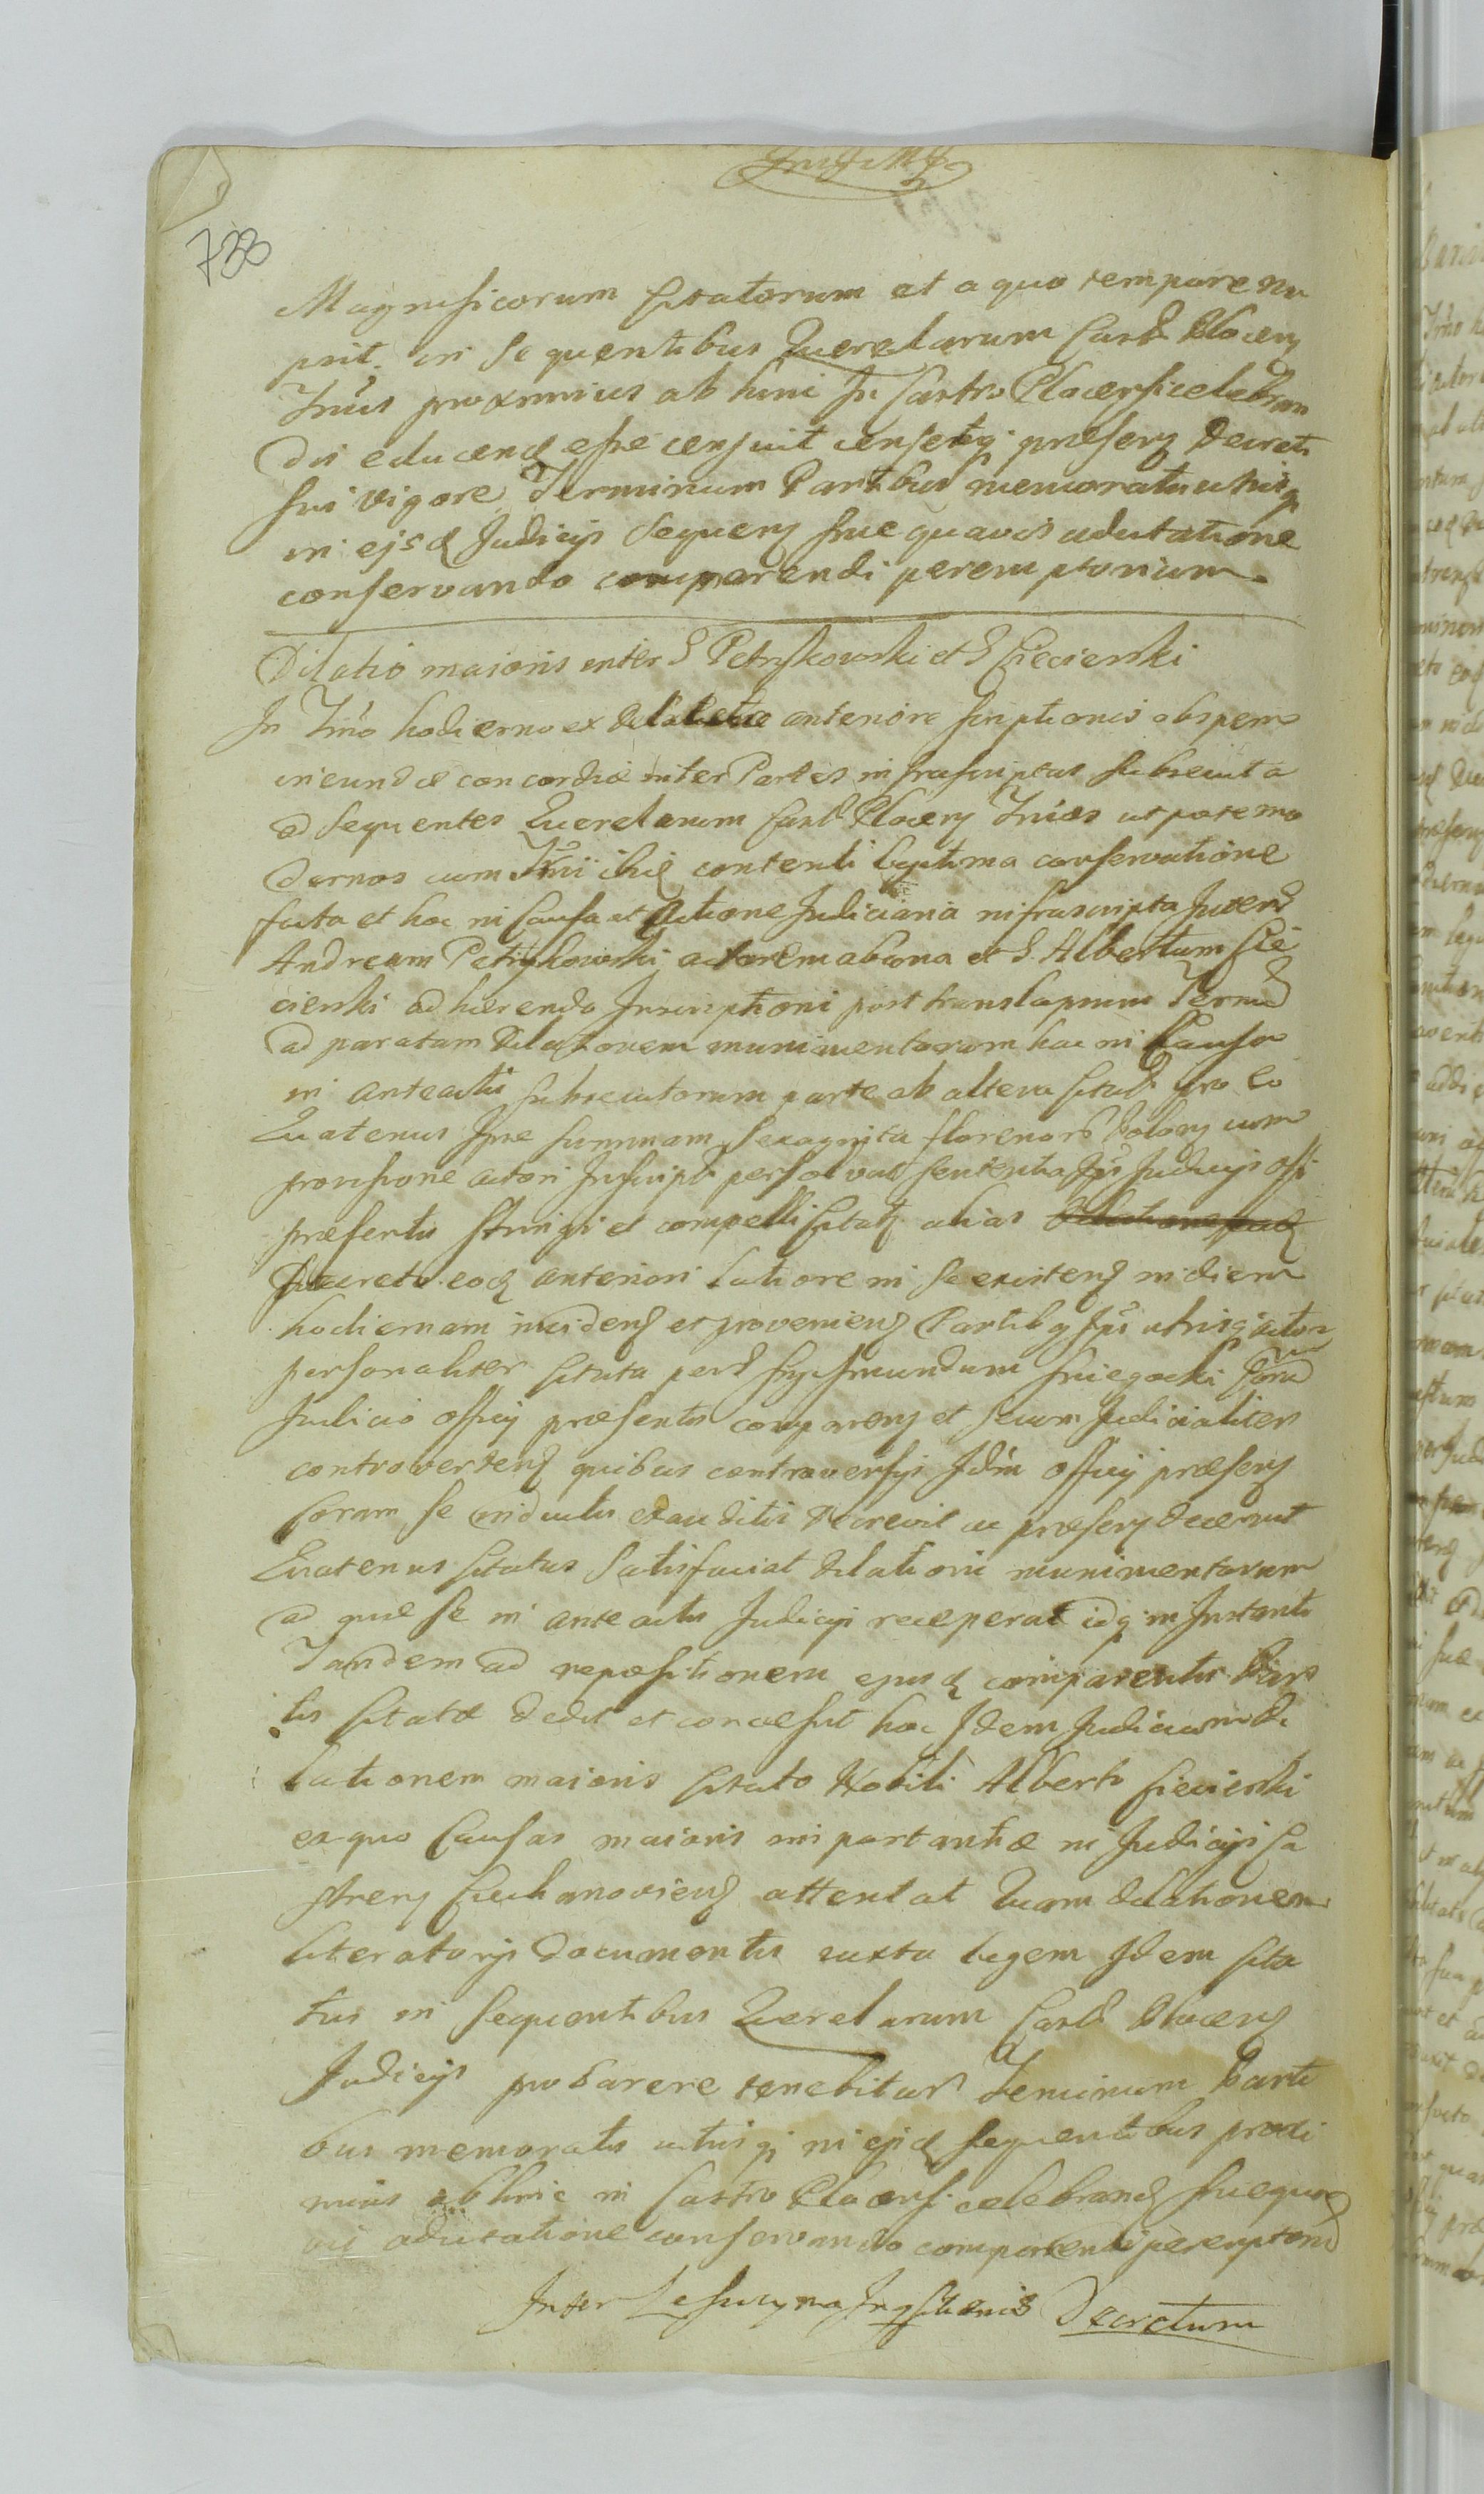 738
Magnificorum Citatorum at a quo tempore nu
psit. in Sequentibus Querelarum Castr Plocen
Trmis proxmius ab hinc In Castro Plocensi celebran
dis educend esse censuit censetq. præsen Decreti
sui vigore Terminum Partibus memoratis utrisq
in ejsd Judicijs Sequen sine quavis adcitatione
conservando comparendi peremptorium.
Dilatio maioris inter G Petrykowski et G Ciecierski
In Trno hodierno ex anteriore scriptionis ob spem
ineundæ concordiæ inter Partes infrascriptas subsecuta
ad Sequentes Querelarum Castr Plocen Trnos ut pote mo
dernos cum Trni contenti legitima conservatione
facta et hoc in Causa et Actione Judiciaria infrascripta
Andream Petrykowski actorem ab una et G. Albertum Cie
cierski adhærendo Inscriptioni post translapsum
ad paratam Dilationem munimentorum hac in Causa
in anteactis subsecutorum parte ab altera Citat pro eo
Quatenus Ipse summam Sexaginta florenor Polon cum
provisione actori Inscript persolvat sententia Judicijs offi
præsentis stringi et compelli Citat alias
Decreto eod anteriori latiore in se existen in diem
hodiernam inciden et provenien Partibq Ips utrisq actor
personaliter Citata per
Judicio officij præsentis comparen et secum Judicialiter
controverten quibus controversijs Idm officij præsens
Coram se inductis exauditis Decrevit ac præsen decernit
Quatenus Citatus Satisfaciat dilationi munimentorum
ad quæ se in anteactis Judicijs receperat idq. in Instanti
Tandem ad repositionem ejusd comparentis Par
tis Citatæ dedit et concessit hoc Idem Judicium Di
lationem maioris Citato Nobili Alberto Ciecierski
ex quo Causas maioris importantiæ in Judicijs Ca
stren Ciechanovien attentat Quam dilationem
literatorijs documentis iuxta legem Idem Cita
tus in Sequentibus Querelarum Castr Plocen
Judicijs probarere tenebitur Terminum Parti
bus memoratis utrisq in ejsd sequentibus proxi
mius abhinc in Castro Plocensi celebrand sine quav
vis adcitatione conservando comparendi peremptoriu
Inter Decretum